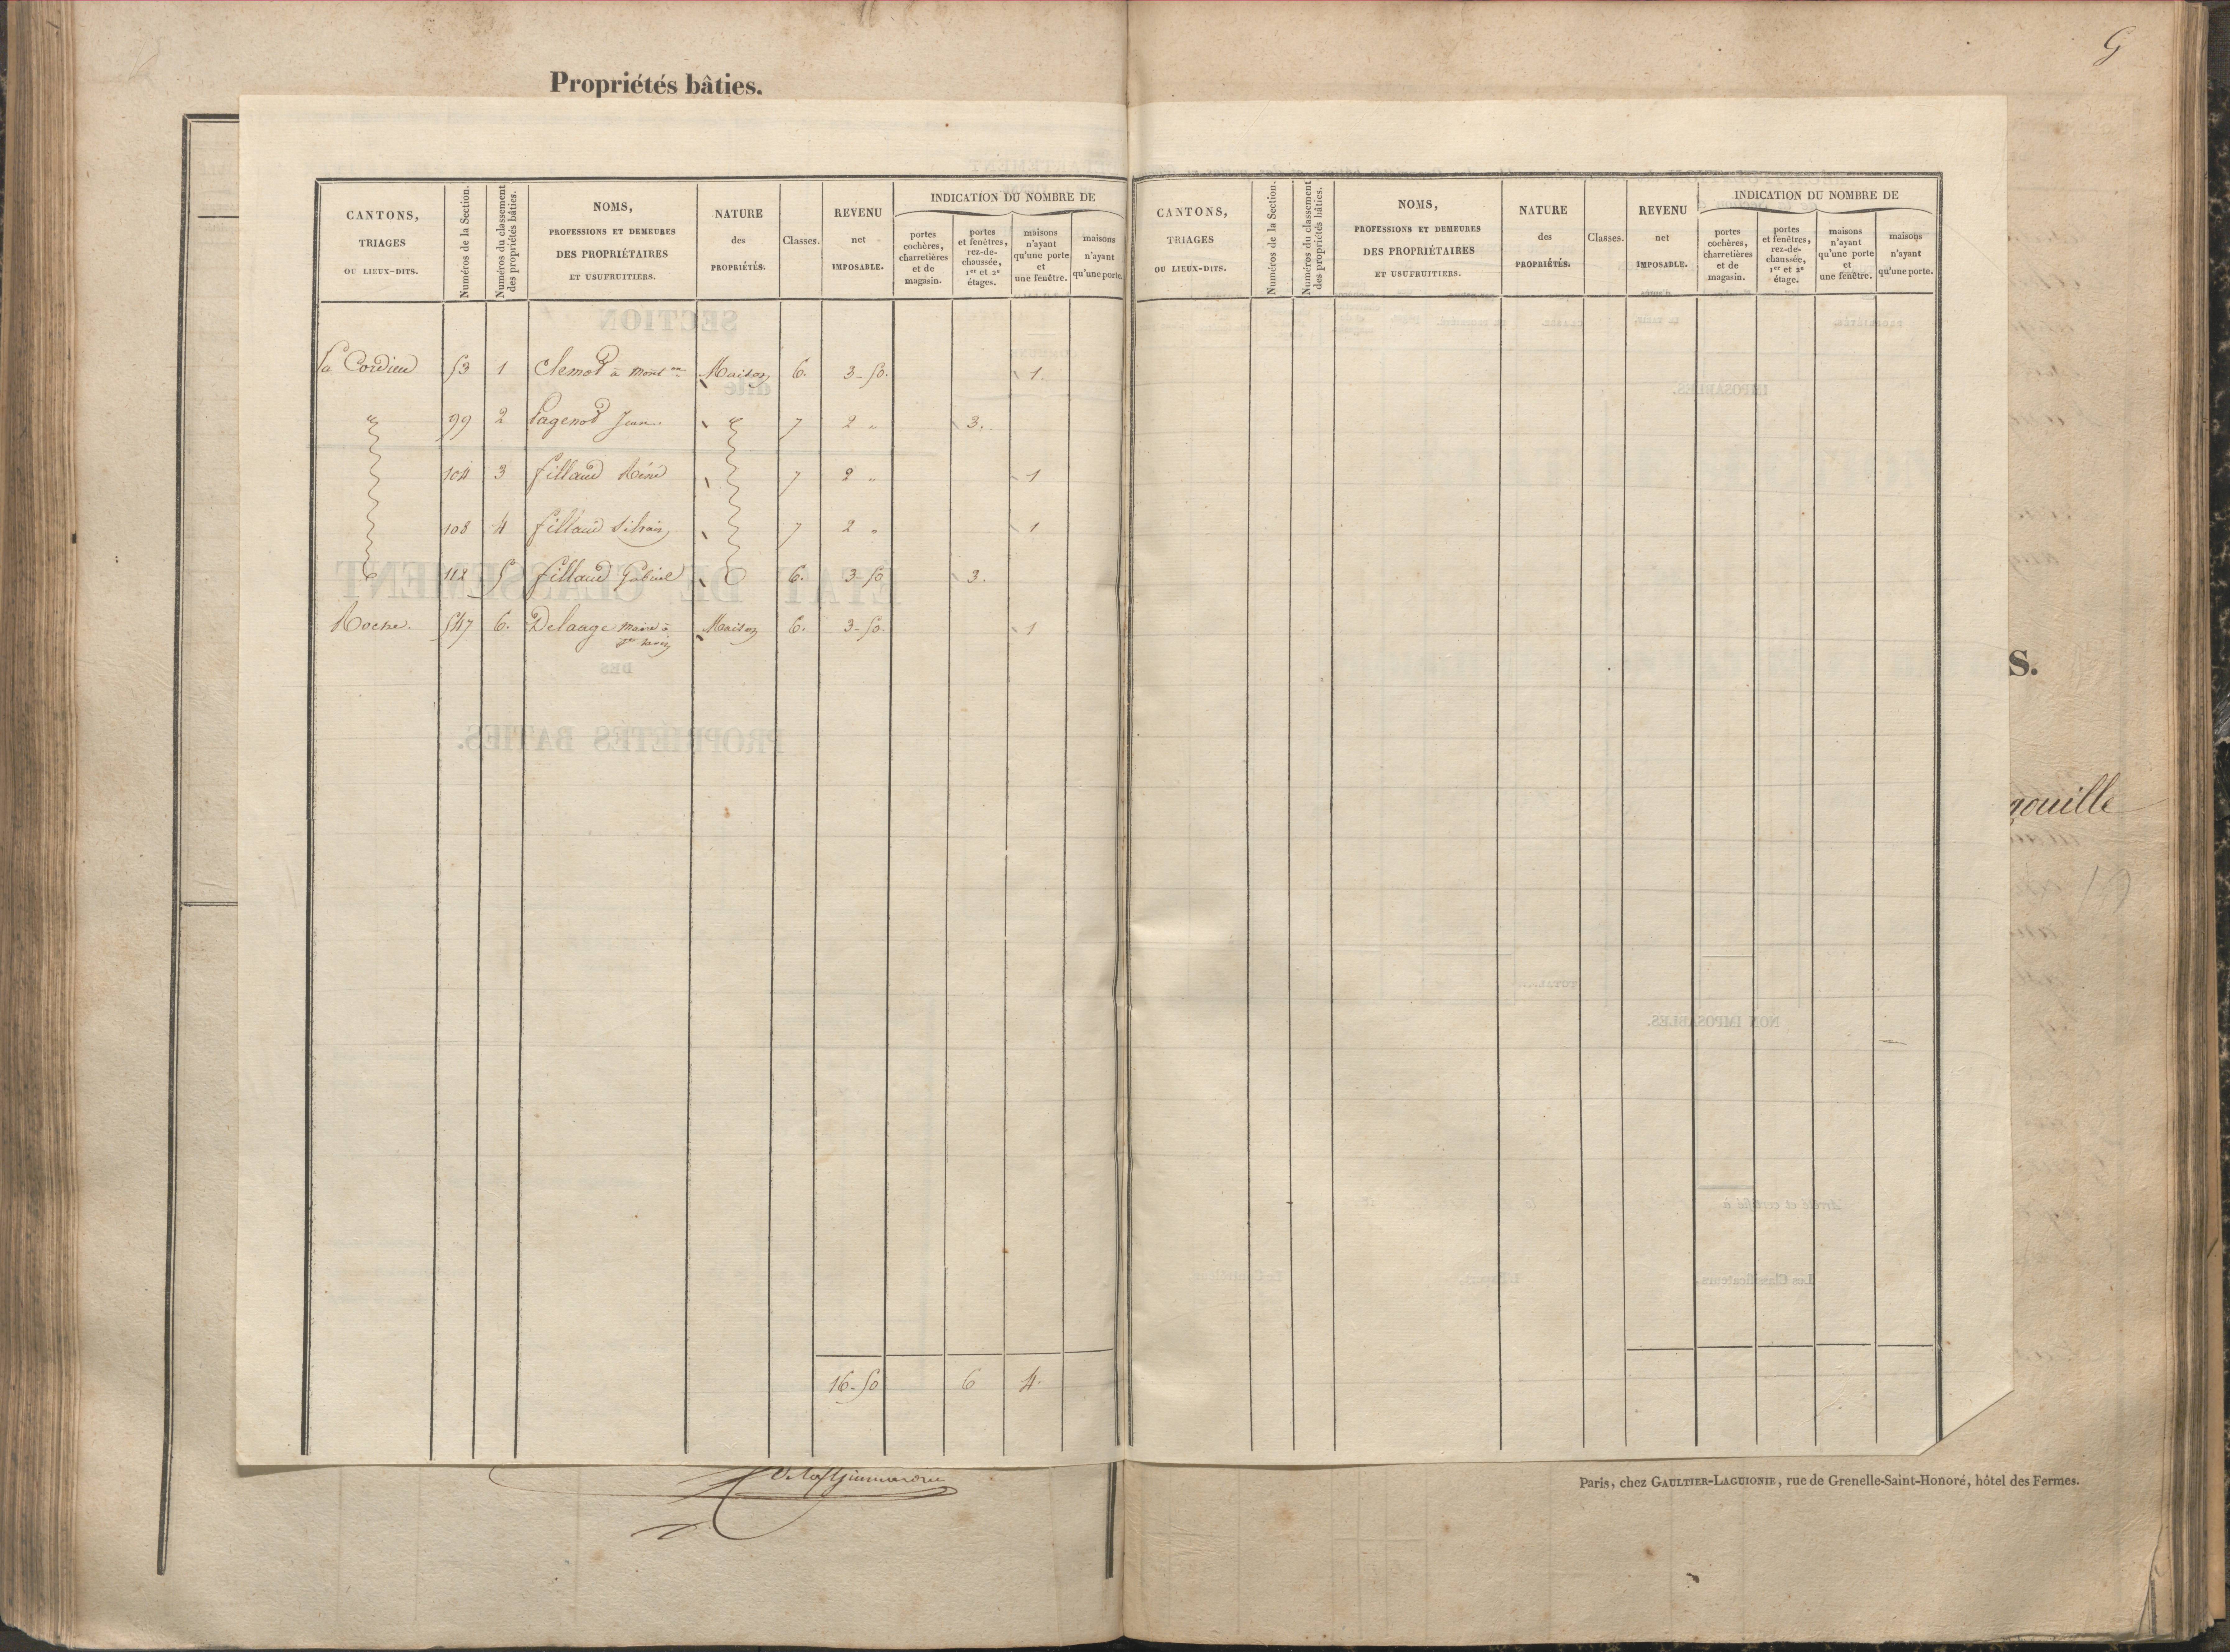 G
Propriétés bâties.
CANTONS, TRIAGES OU LIEUX-DITS. | Numéros de la Section. | Numéros du classement des propriétés bâties. | NOMS, PROFESSIONS ET DEMEURES DES PROPRIÉTAIRES ET USUFRUITIERS. | NATURE des PROPRIÉTÉS. | Classes. | REVENU net IMPOSABLE. | INDICATION DU NOMBRE DE | portes cochères, charretières et de magasin. | portes et fenêtres, rez-de-chaussée, 1er et 2e étages. | maisons n'ayant qu'une porte et une fenêtre. | maisons n'ayant qu'une porte.
La Cordieu 53 1 Clemot à Mont on Maison 6. 3-50. 1.
99 2 Pagenot Jean 7 2 " 3.
104 3 fillaud Réné 7 2 " 1
108 4 fillaud Silvain 7 2 " 1
112 5 fillaud Gabriel 6. 3-50 3.
Roche. 547 6. Delauge Maire à
Maison 6. 3-50. 1
16-50 6 4.
CANTONS, TRIAGES OU LIEUX-DITS. | Numéros de la Section. | Numéros du classement des propriétés bâties. | NOMS, PROFESSIONS ET DEMEURES DES PROPRIÉTAIRES ET USUFRUITIERS. | NATURE des PROPRIÉTÉS. | Classes. | REVENU net IMPOSABLE. | INDICATION DU NOMBRE DE | portes cochères, charretières et de magasin. | portes et fenêtres, rez-de-chaussée, 1er et 2e étage. | maisons n'ayant qu'une porte et une fenêtre. | maisons n'ayant qu'une porte.
S.
gouille
Paris, chez GAULTIER-LAGUIONIE, rue de Grenelle-Saint-Honoré, hôtel des Fermes.